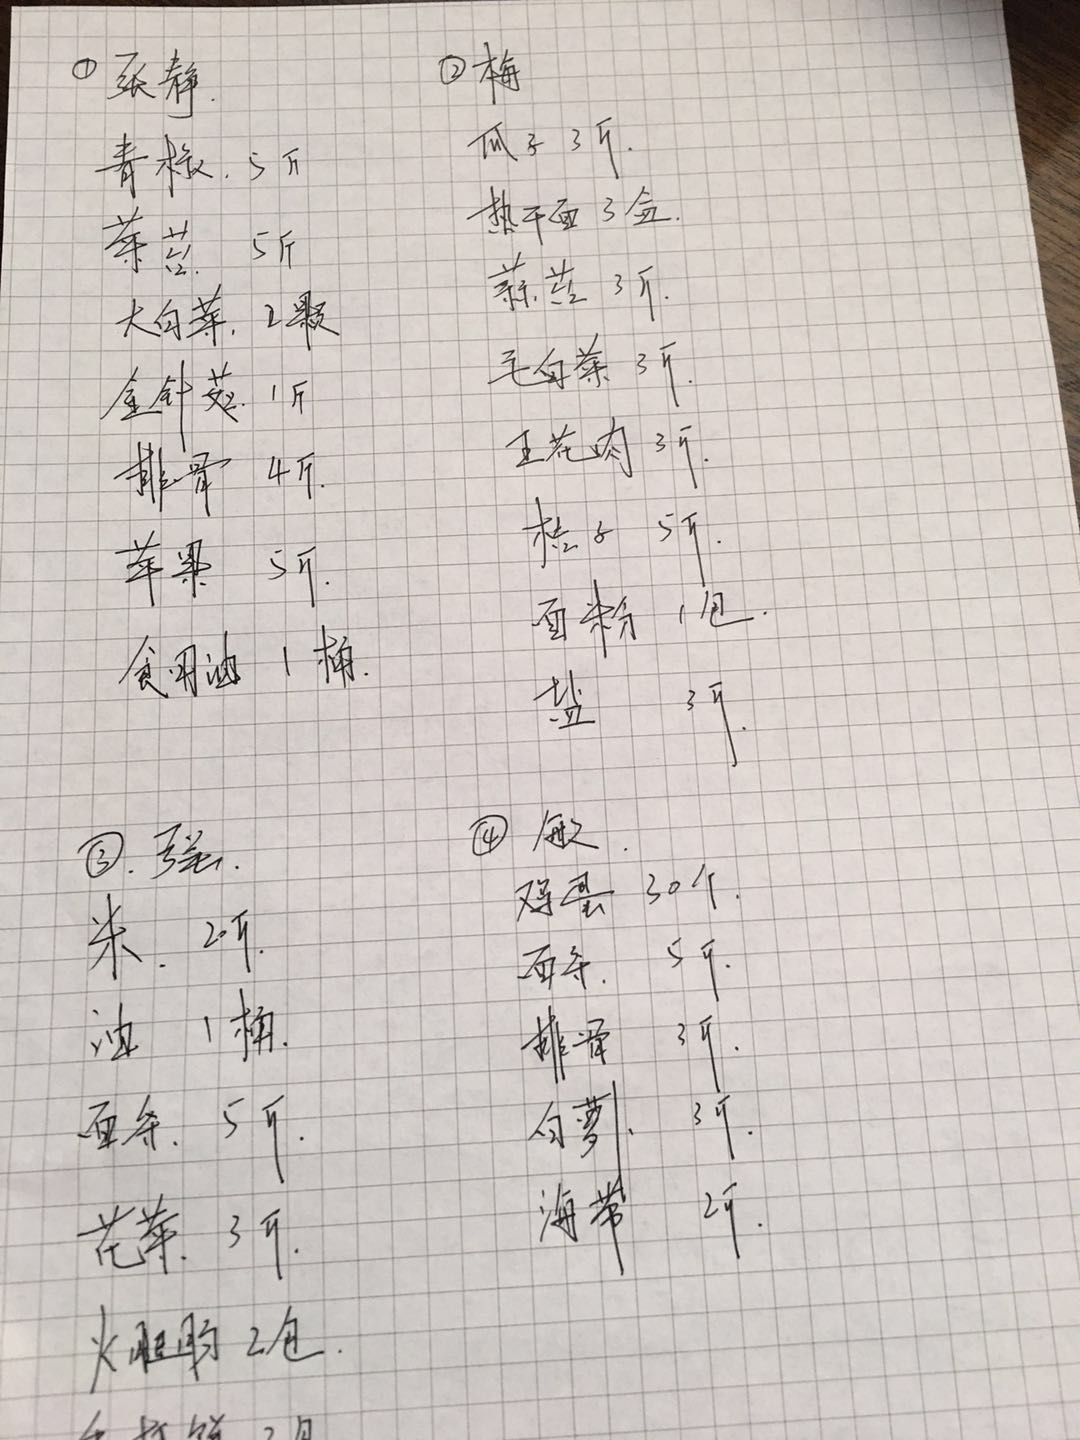 ① 张静.
青椒. 5斤
菜苔. 5斤
大白菜. 2颗
金针菇. 1斤
排骨 4斤.
苹果 5斤.
食用油 1桶.
② 梅
瓜子 3斤.
热干面 3盒.
蒜苔 3斤.
毛白菜 3斤.
五花肉 3斤.
橙子 5斤.
面粉 1包.
盐 3斤.
③. 强.
米. 20斤.
油 1桶.
面条. 5斤.
花菜. 3斤.
火腿肠 2包.
2包
④ 敏.
鸡蛋 30个.
面条. 5斤.
排骨 3斤.
白萝卜. 3斤.
海带 2斤.